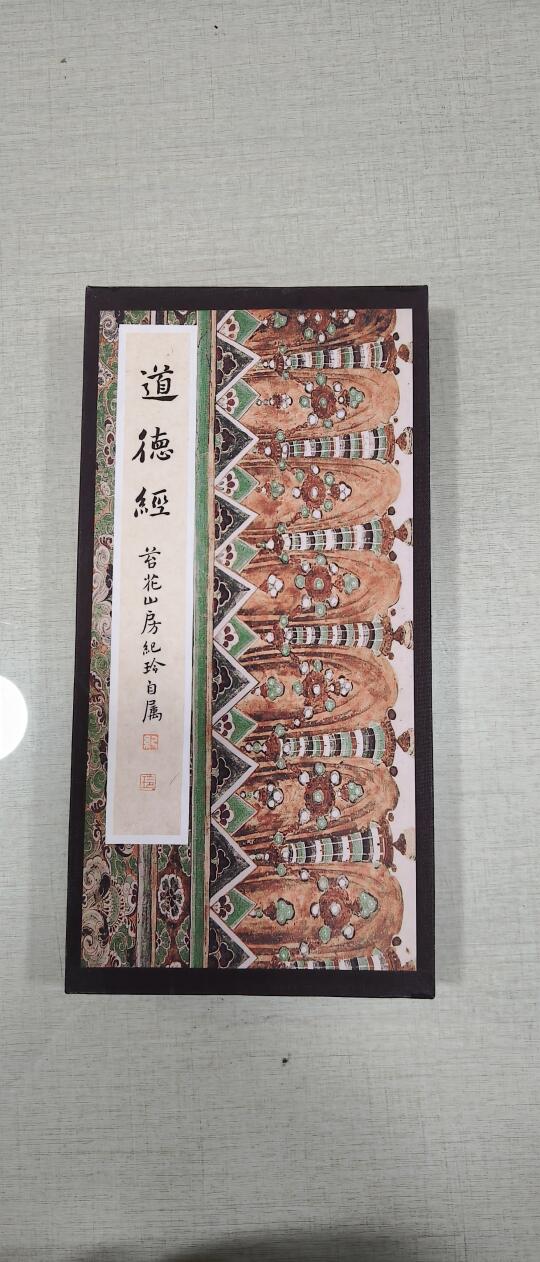 道德經
苔花山房紀玲自属